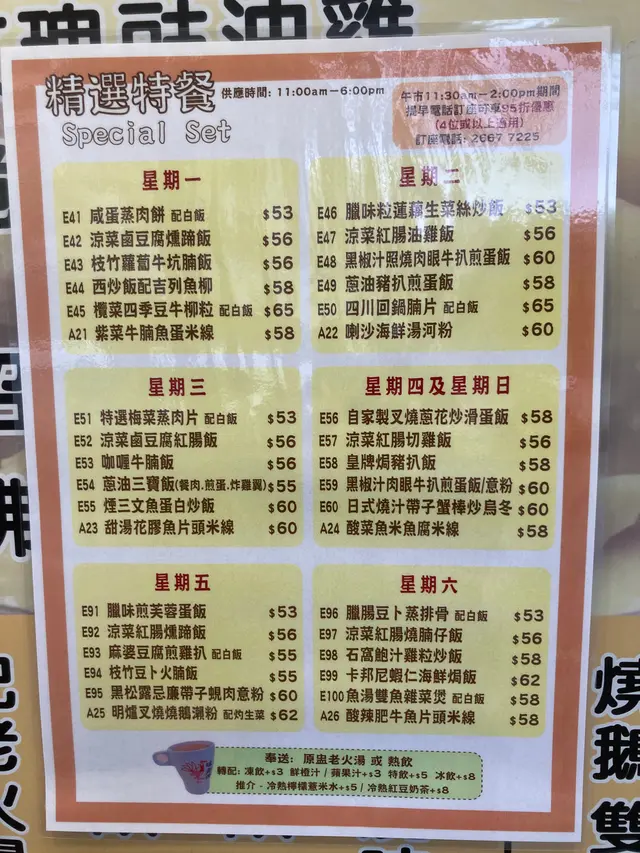 精選特餐 供應時間: 11:00am－6:00pm
Special Set
午市11:30am－2:00pm期間
提早電話訂座可享95折優惠
(4位或以上適用)
訂座電話: 2667 7225
星期一
E41 咸蛋蒸肉餅 配白飯 $53
E42 涼菜鹵豆腐燻蹄飯 $56
E43 枝竹蘿蔔牛坑腩飯 $56
E44 西炒飯配吉列魚柳 $58
E45 欖菜四季豆牛柳粒 配白飯 $65
A21 紫菜牛腩魚蛋米線 $58
星期二
E46 臘味粒蓮藕生菜絲炒飯 $53
E47 涼菜紅腸油雞飯 $56
E48 黑椒汁照燒肉眼牛扒煎蛋飯 $60
E49 蔥油豬扒煎蛋飯 $58
E50 四川回鍋腩片 配白飯 $65
A22 喇沙海鮮湯河粉 $60
星期三
E51 特選梅菜蒸肉片 配白飯 $53
E52 涼菜鹵豆腐紅腸飯 $56
E53 咖喱牛腩飯 $56
E54 蔥油三寶飯(餐肉.煎蛋.炸雞翼) $55
E55 煙三文魚蛋白炒飯 $60
A23 甜湯花膠魚片頭米線 $60
星期四及星期日
E56 自家製叉燒蔥花炒滑蛋飯 $58
E57 涼菜紅腸切雞飯 $56
E58 皇牌焗豬扒飯 $58
E59 黑椒汁肉眼牛扒煎蛋飯/意粉 $60
E60 日式燒汁帶子蟹棒炒烏冬 $60
A24 酸菜魚米魚腐米線 $58
星期五
E91 臘味煎芙蓉蛋飯 $53
E92 涼菜紅腸燻蹄飯 $56
E93 麻婆豆腐煎雞扒 配白飯 $55
E94 枝竹豆卜火腩飯 $55
E95 黑松露忌廉帶子蜆肉意粉 $60
A25 明爐叉燒燒鵝瀨粉 配灼生菜 $62
星期六
E96 臘腸豆卜蒸排骨 配白飯 $53
E97 涼菜紅腸燒腩仔飯 $56
E98 石窩鮑汁雞粒炒飯 $58
E99 卡邦尼蝦仁海鮮焗飯 $62
E100 魚湯雙魚雜菜煲 配白飯 $58
A26 酸辣肥牛魚片頭米線 $58
奉送: 原盅老火湯 或 熱飲
轉配: 凍飲+$3 鮮橙汁/蘋果汁+$3 特飲+$5 冰飲+$8
推介 - 冷熱檸檬薏米水+$5 / 冷熱紅豆奶茶+$8
燒
鵝
雙
老
火
湯